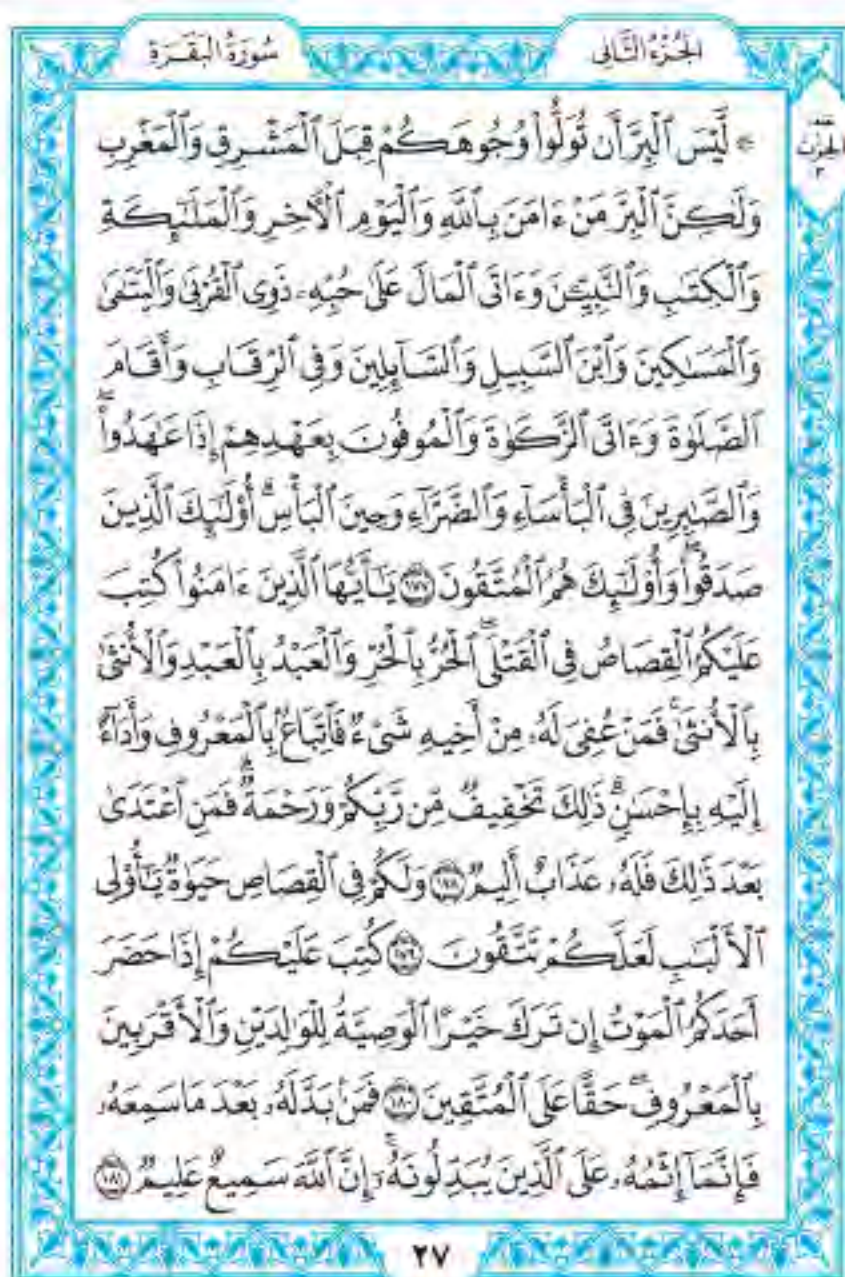 الجُزْءُ الثَّانِي
سُورَةُ البَقَرَةِ
الحزب
٣
۞ لَّيْسَ ٱلْبِرَّ أَن تُوَلُّوا۟ وُجُوهَكُمْ قِبَلَ ٱلْمَشْرِقِ وَٱلْمَغْرِبِ
وَلَٰكِنَّ ٱلْبِرَّ مَنْ ءَامَنَ بِٱللَّهِ وَٱلْيَوْمِ ٱلْأَخِرِ وَٱلْمَلَٰٓئِكَةِ
وَٱلْكِتَٰبِ وَٱلنَّبِيِّـۧنَ وَءَاتَى ٱلْمَالَ عَلَىٰ حُبِّهِۦ ذَوِى ٱلْقُرْبَىٰ وَٱلْيَتَٰمَىٰ
وَٱلْمَسَٰكِينَ وَٱبْنَ ٱلسَّبِيلِ وَٱلسَّآئِلِينَ وَفِى ٱلرِّقَابِ وَأَقَامَ
ٱلصَّلَوٰةَ وَءَاتَى ٱلزَّكَوٰةَ وَٱلْمُوفُونَ بِعَهْدِهِمْ إِذَا عَٰهَدُوا۟ۖ
وَٱلصَّٰبِرِينَ فِى ٱلْبَأْسَآءِ وَٱلضَّرَّآءِ وَحِينَ ٱلْبَأْسِۗ أُو۟لَٰٓئِكَ ٱلَّذِينَ
صَدَقُوا۟ۖ وَأُو۟لَٰٓئِكَ هُمُ ٱلْمُتَّقُونَ ١٧٧ يَٰٓأَيُّهَا ٱلَّذِينَ ءَامَنُوا۟ كُتِبَ
عَلَيْكُمُ ٱلْقِصَاصُ فِى ٱلْقَتْلَىۖ ٱلْحُرُّ بِٱلْحُرِّ وَٱلْعَبْدُ بِٱلْعَبْدِ وَٱلْأُنثَىٰ
بِٱلْأُنثَىٰۚ فَمَنْ عُفِىَ لَهُۥ مِنْ أَخِيهِ شَىْءٌ فَٱتِّبَاعٌۢ بِٱلْمَعْرُوفِ وَأَدَآءٌ
إِلَيْهِ بِإِحْسَٰنٍۗ ذَٰلِكَ تَخْفِيفٌ مِّن رَّبِّكُمْ وَرَحْمَةٌۗ فَمَنِ ٱعْتَدَىٰ
بَعْدَ ذَٰلِكَ فَلَهُۥ عَذَابٌ أَلِيمٌ ١٧٨ وَلَكُمْ فِى ٱلْقِصَاصِ حَيَوٰةٌ يَٰٓأُو۟لِى
ٱلْأَلْبَٰبِ لَعَلَّكُمْ تَتَّقُونَ ١٧٩ كُتِبَ عَلَيْكُمْ إِذَا حَضَرَ
أَحَدَكُمُ ٱلْمَوْتُ إِن تَرَكَ خَيْرًا ٱلْوَصِيَّةُ لِلْوَٰلِدَيْنِ وَٱلْأَقْرَبِينَ
بِٱلْمَعْرُوفِۖ حَقًّا عَلَى ٱلْمُتَّقِينَ ١٨٠ فَمَنۢ بَدَّلَهُۥ بَعْدَ مَا سَمِعَهُۥ
فَإِنَّمَآ إِثْمُهُۥ عَلَى ٱلَّذِينَ يُبَدِّلُونَهُۥٓۚ إِنَّ ٱللَّهَ سَمِيعٌ عَلِيمٌ ١٨١
٢٧